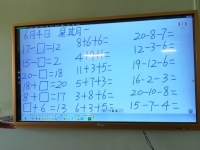 6月4日 星期一
17-□=12 8+6+6= 20-8-7=
15-□=2 12-3-6=
20-□=18 11+3+5= 19-12-6=
18+□=20 5+7+3= 16-2-3=
8+□=17 3+8+6= 20-10-3=
□+6=13 6+3+5= 15-7-4=